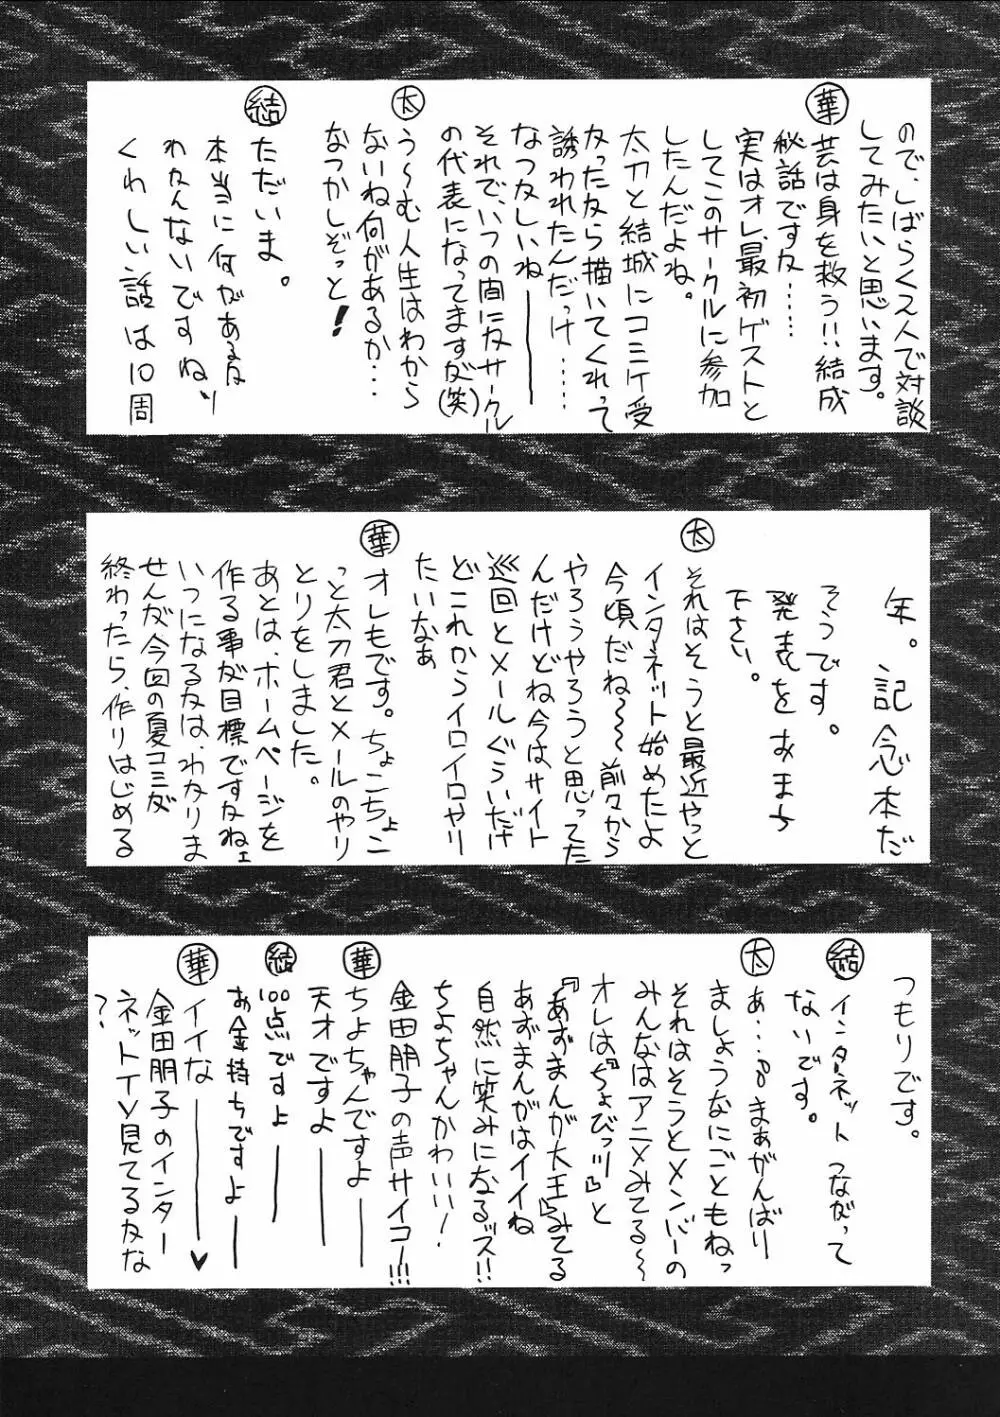 ので、しばらく2人で対談
してみたいと思います。
華 芸は身を救う!!結成
秘話ですな……
実はオレ、最初ゲストと
してこのサークルに参加
したんだよね。
太刀と結城にコミケ受
かったなら描いてくれって
誘われたんだっけ……
なつかしいね───
それで、いつの間にかサークル
の代表になってますが(笑)
太 う〜む人生はわから
ないね何があるか…
なつかしぞっと!
結 ただいま。
本当に何があるか
わかんないですね、
くわしい話は10周
年。記念本だ
そうです。
発表をおまち
下さい。
太 それはそうと最近やっと
インタネット始めたよ
今頃だね〜〜前々から
やろうやろうと思ってた
んだけどね今はサイト
巡回とメールぐらいだけ
どこれからイロイロやり
たいなぁ
華 オレもです。ちょこちょこ
っと太刀君とメールのやり
とりをしました。
あとは、ホームページを
作る事が目標ですかねェ
いつになるかは、わかりま
せんが今回の夏コミが
終わったら、作りはじめる
つもりです。
結 インターネットつながって
ないです。
太 あ…。まぁがんばり
ましょうなにごともねっ
それはそうとメンバーの
みんなはアニメみてる〜
オレは『ちょびっツ』と
『あずまんが大王』みてる
あずまんがはイイね
自然に笑みになるッス!!
ちよちゃんかわいい!
金田朋子の声サイコー!!!
華 ちよちゃんですよ──
天才ですよ───
結 100点ですよ───
お金持ちですよ──
華 イイな────♥
金田朋子のインター
ネットTV見てるかな
?